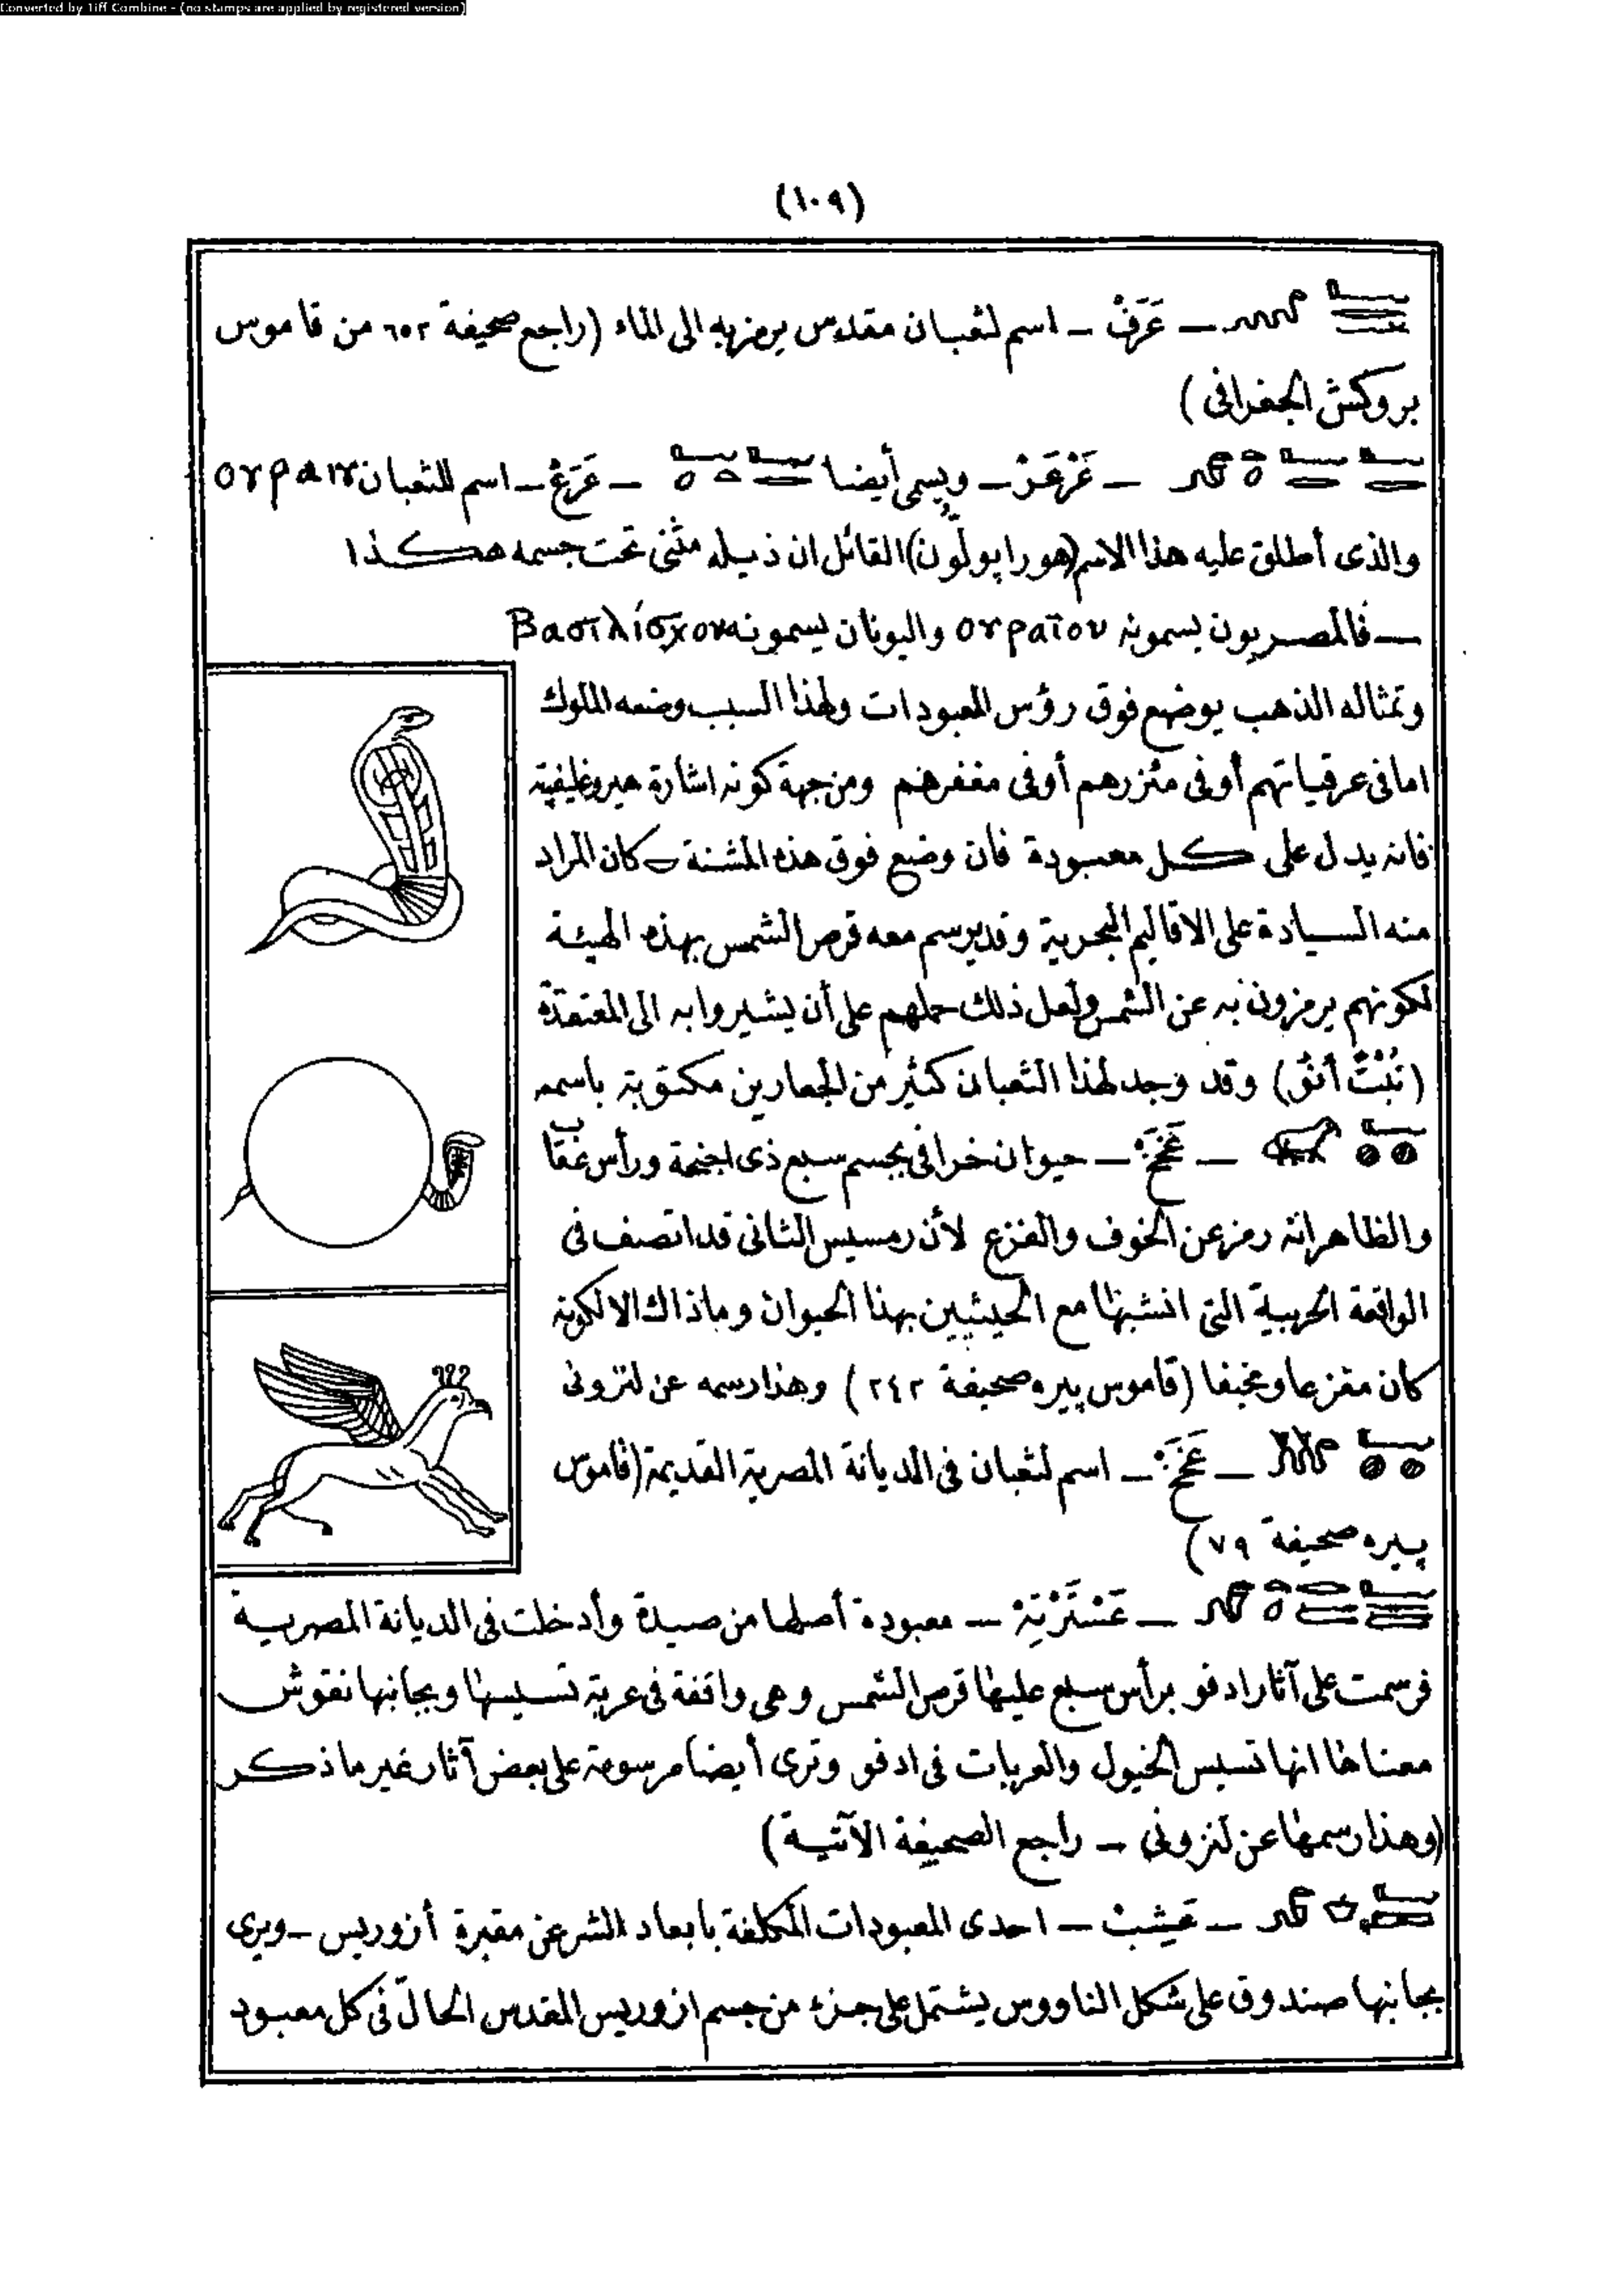 Converted by Tiff Combine - (no stamps are applied by registered version)
(١٠٩)
— عَرَفْ — اسم لثعبان مقدس يرمز به الى الماء (راجع صحيفة ٦٥٢ من قاموس
بروكش الجغرافى)
— عَرْعَرْ — ويسمى أيضا — عَرَعْ — اسم للثعبان
والذى أطلق عليه هذا الاسم (هورابولون) القائل ان ذيله مثنى تحت جسمه هكذا
— فالمصريون يسمونه ουραῖου واليونان يسمونه Βασιλίσχον
وتمثاله الذهب يوضع فوق رؤس المعبودات ولهذا السبب وضعه الملوك
اما فى عرقياتهم أو فى مئزرهم أو فى مغفرهم ومن جهة كونه اشارة هيروغليفية
فانه يدل على كل معبودة فان وضع فوق هذه المشنة كان المراد
منه السيادة على الاقاليم البحرية وقد يرسم معه قرص الشمس بهذه الهيئة
لكونهم يرمزون به عن الشمس ولعل ذلك حملهم على أن يشيروا به الى المعتقدة
(نُبْتْ أنْقْ) وقد وجد لهذا الثعبان كثير من الجعارين مكتوبة باسمه
— عَخَخْ — حيوان خرافى بجسم سبع ذى اجنحة ورأس عقاب
والظاهر انه رمز عن الخوف والفزع لأن رمسيس الثانى قد اتصف فى
الواقعة الحربية التى انشبها مع الحيثيين بهذا الحيوان وما ذاك الا لكونه
كان مفزعا ومخيفا (قاموس پيره صحيفة ٢٤٢) وهذا رسمه عن لنزونى
— عَخَخْ — اسم لثعبان فى الديانة المصرية القديمة (قاموس
پيره صحيفة ٧٩)
— عَسْتَرْتِهْ — معبودة أصلها من صيدة وأدخلت فى الديانة المصرية
فرسمت على آثار ادفو برأس سبع عليها قرص الشمس وهى واقفة فى عربة تسيسها وبجانبها نقوش
معناها انها تسيس الخيول والعربات فى ادفو وترى أيضا مرسومة على بعض آثار غير ما ذكر
(وهذا رسمها عن لنزونى — راجع الصحيفة الآتية)
— عَشِبْ — احدى المعبودات المكلفة بابعاد الشر عن مقبرة أزوريس — ويرى
بجانبها صندوق على شكل الناووس يشتمل على جزء من جسم ازوريس المقدس الحالّ فى كل معبود